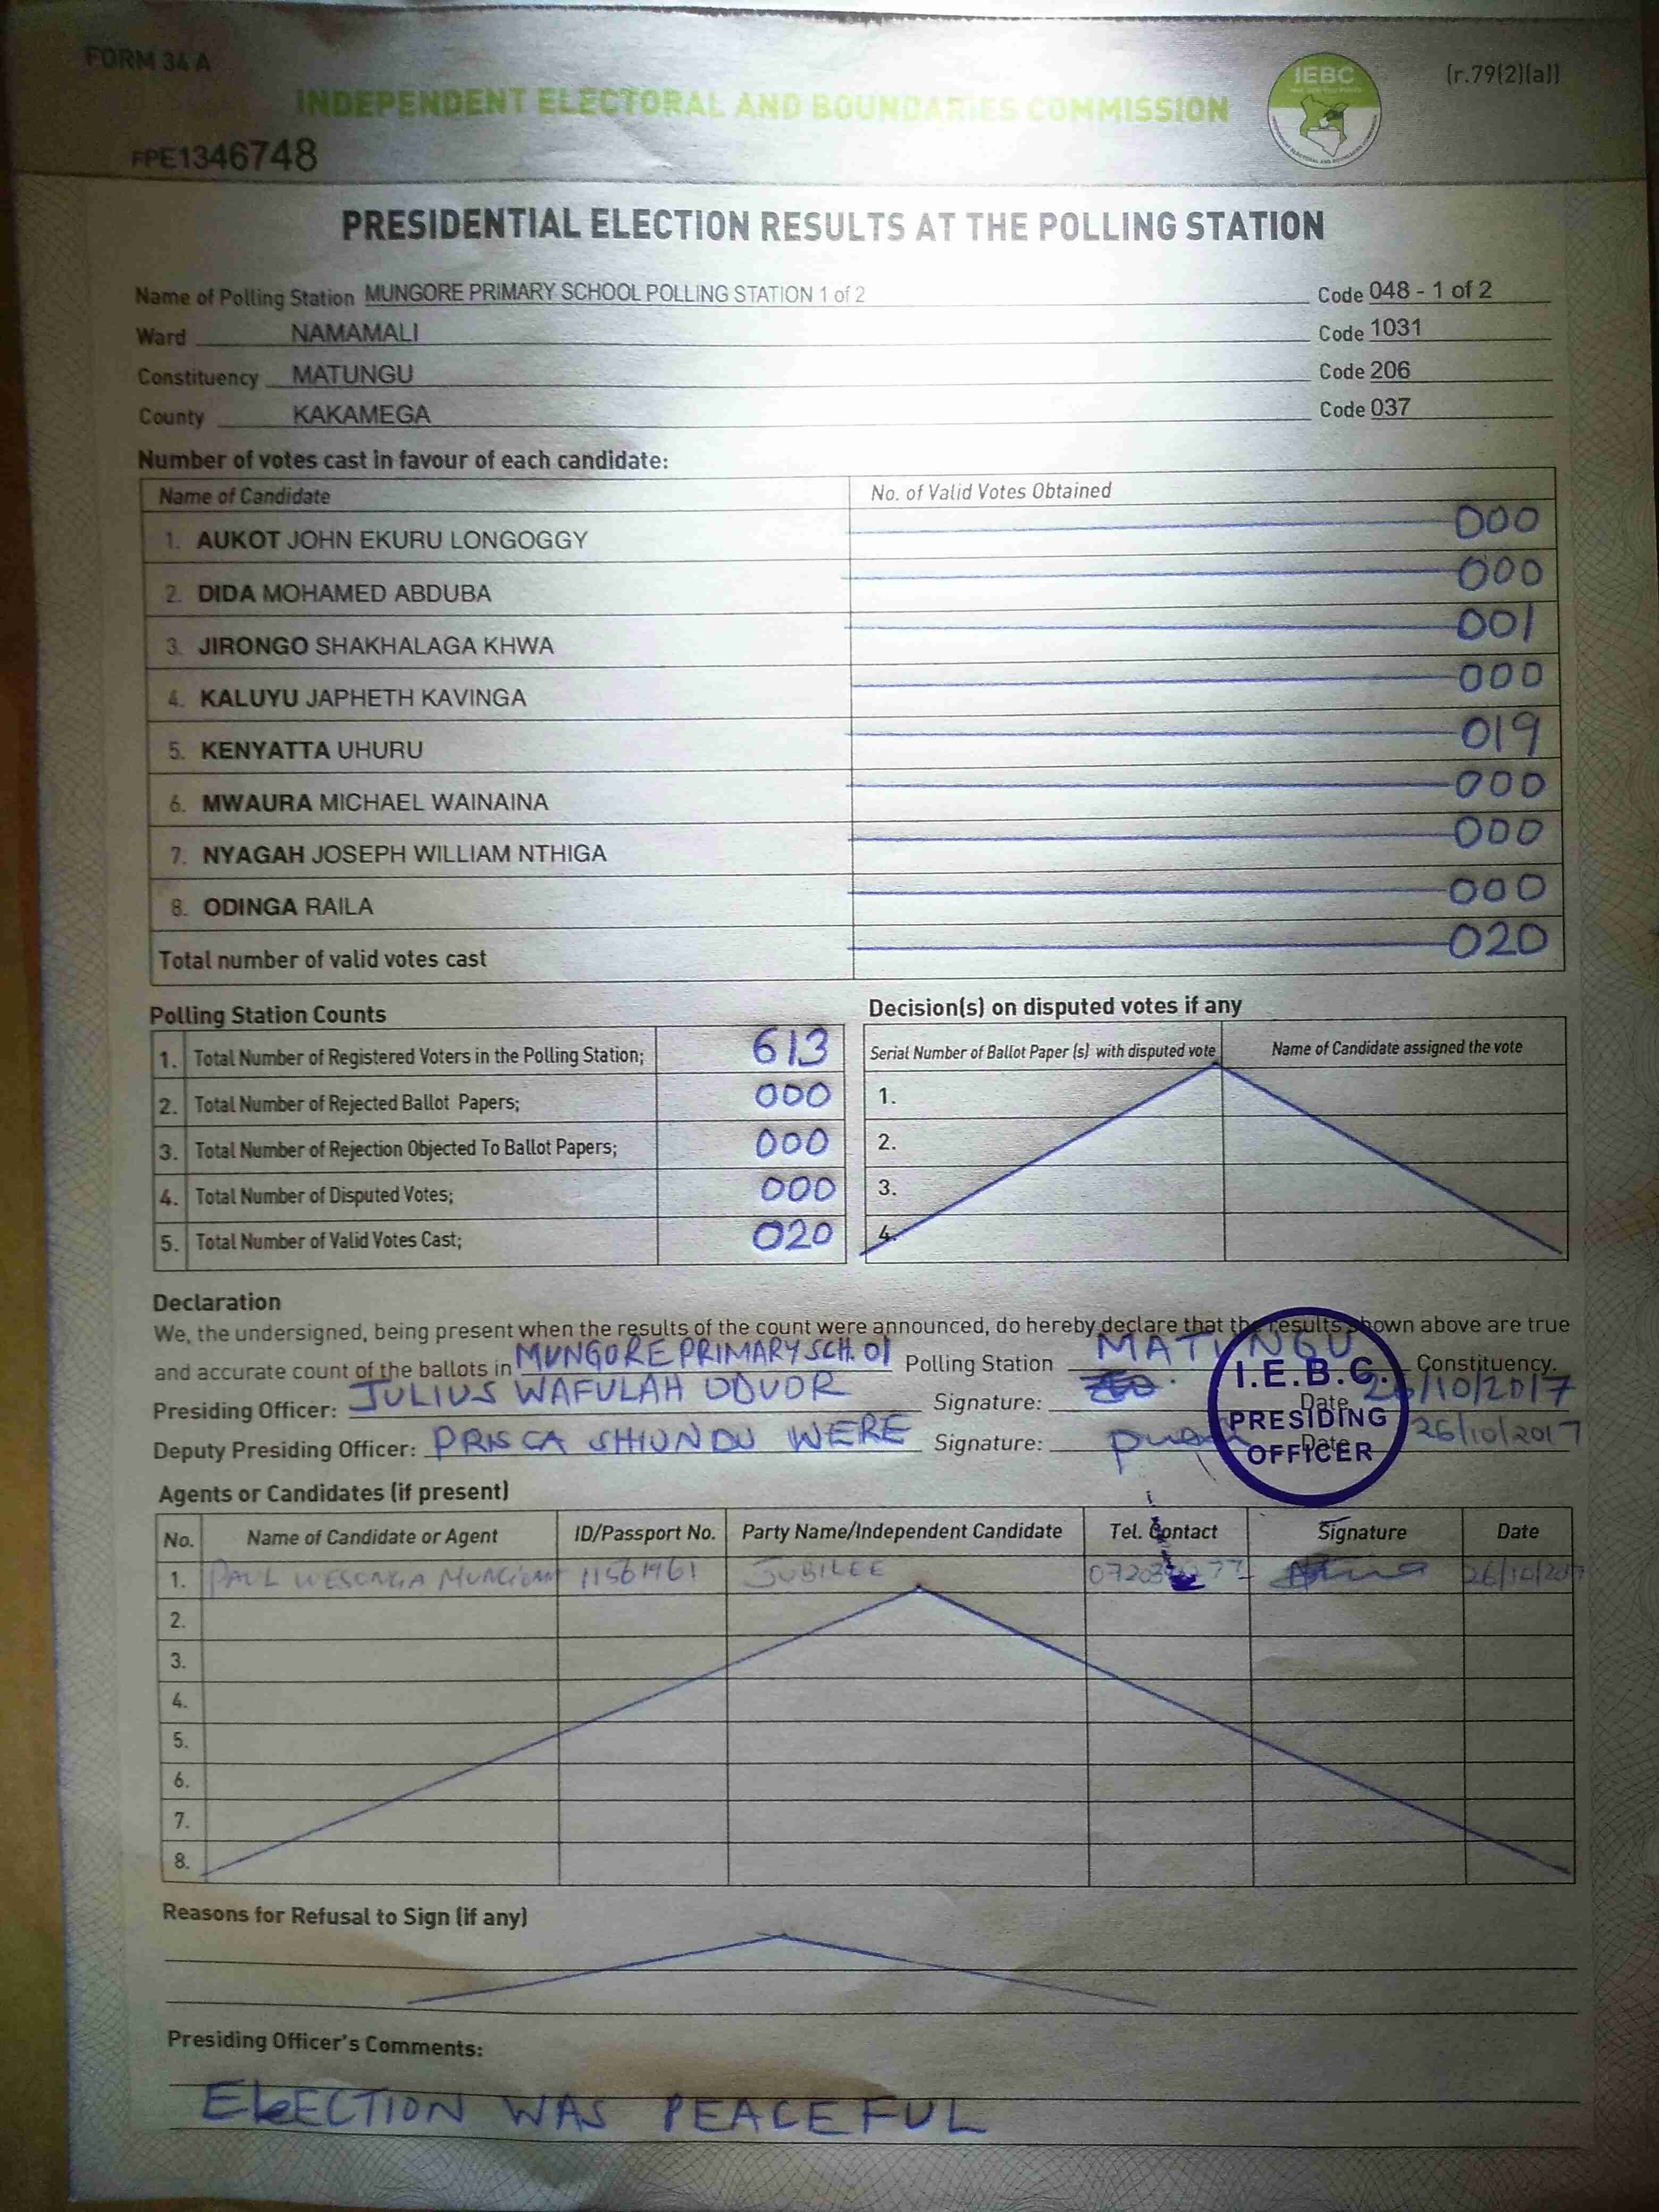 FORM 34 A
(r.79(2)(a))
IEBC
INDEPENDENT ELECTORAL AND BOUNDARIES COMMISSION
FPE1346748
PRESIDENTIAL ELECTION RESULTS AT THE POLLING STATION
Name of Polling Station MUNGORE PRIMARY SCHOOL POLLING STATION 1 of 2 Code 048 - 1 of 2
Ward NAMAMALI Code 1031
Constituency MATUNGU Code 206
County KAKAMEGA Code 037
Number of votes cast in favour of each candidate:
Name of Candidate No. of Valid Votes Obtained
1. AUKOT JOHN EKURU LONGOGGY 000
2. DIDA MOHAMED ABDUBA 000
3. JIRONGO SHAKHALAGA KHWA 001
4. KALUYU JAPHETH KAVINGA 000
5. KENYATTA UHURU 019
6. MWAURA MICHAEL WAINAINA 000
7. NYAGAH JOSEPH WILLIAM NTHIGA 000
8. ODINGA RAILA 000
Total number of valid votes cast 020
Polling Station Counts
1. Total Number of Registered Voters in the Polling Station; 613
2. Total Number of Rejected Ballot Papers; 000
3. Total Number of Rejection Objected To Ballot Papers; 000
4. Total Number of Disputed Votes; 000
5. Total Number of Valid Votes Cast; 020
Decision(s) on disputed votes if any
Serial Number of Ballot Paper (s) with disputed vote Name of Candidate assigned the vote
1.
2.
3.
4.
Declaration
We, the undersigned, being present when the results of the count were announced, do hereby declare that the results shown above are true
and accurate count of the ballots in MUNGORE PRIMARY SCH. 01 Polling Station MATUNGU Constituency.
Presiding Officer: JULIUS WAFULAH ODUOR Signature: Date 26/10/2017
Deputy Presiding Officer: PRISCA SHIUNDU WERE Signature: Date 26/10/2017
I.E.B.C.
PRESIDING
OFFICER
Agents or Candidates (if present)
No. Name of Candidate or Agent ID/Passport No. Party Name/Independent Candidate Tel. Contact Signature Date
1. PAUL WESONGA 11561961 JUBILEE 26/10/2017
2.
3.
4.
5.
6.
7.
8.
Reasons for Refusal to Sign (if any)
Presiding Officer's Comments:
ELECTION WAS PEACEFUL